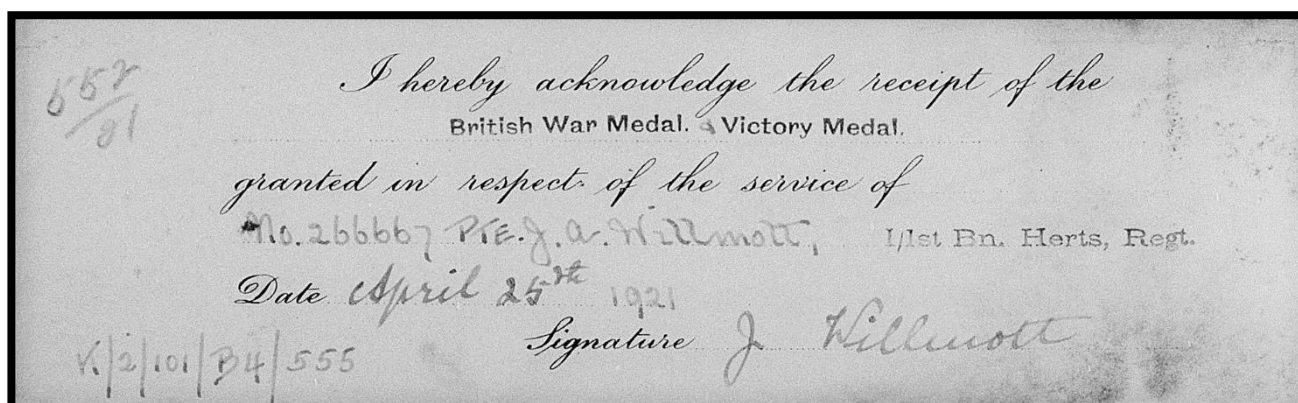 552/21
I hereby acknowledge the receipt of the
British War Medal. & Victory Medal.
granted in respect of the service of
No. 266667 PTE. J. A. Willmott, 1/1st Bn. Herts, Regt.
Date April 25th 1921
Signature J Willmott
K/2/101/B4/555